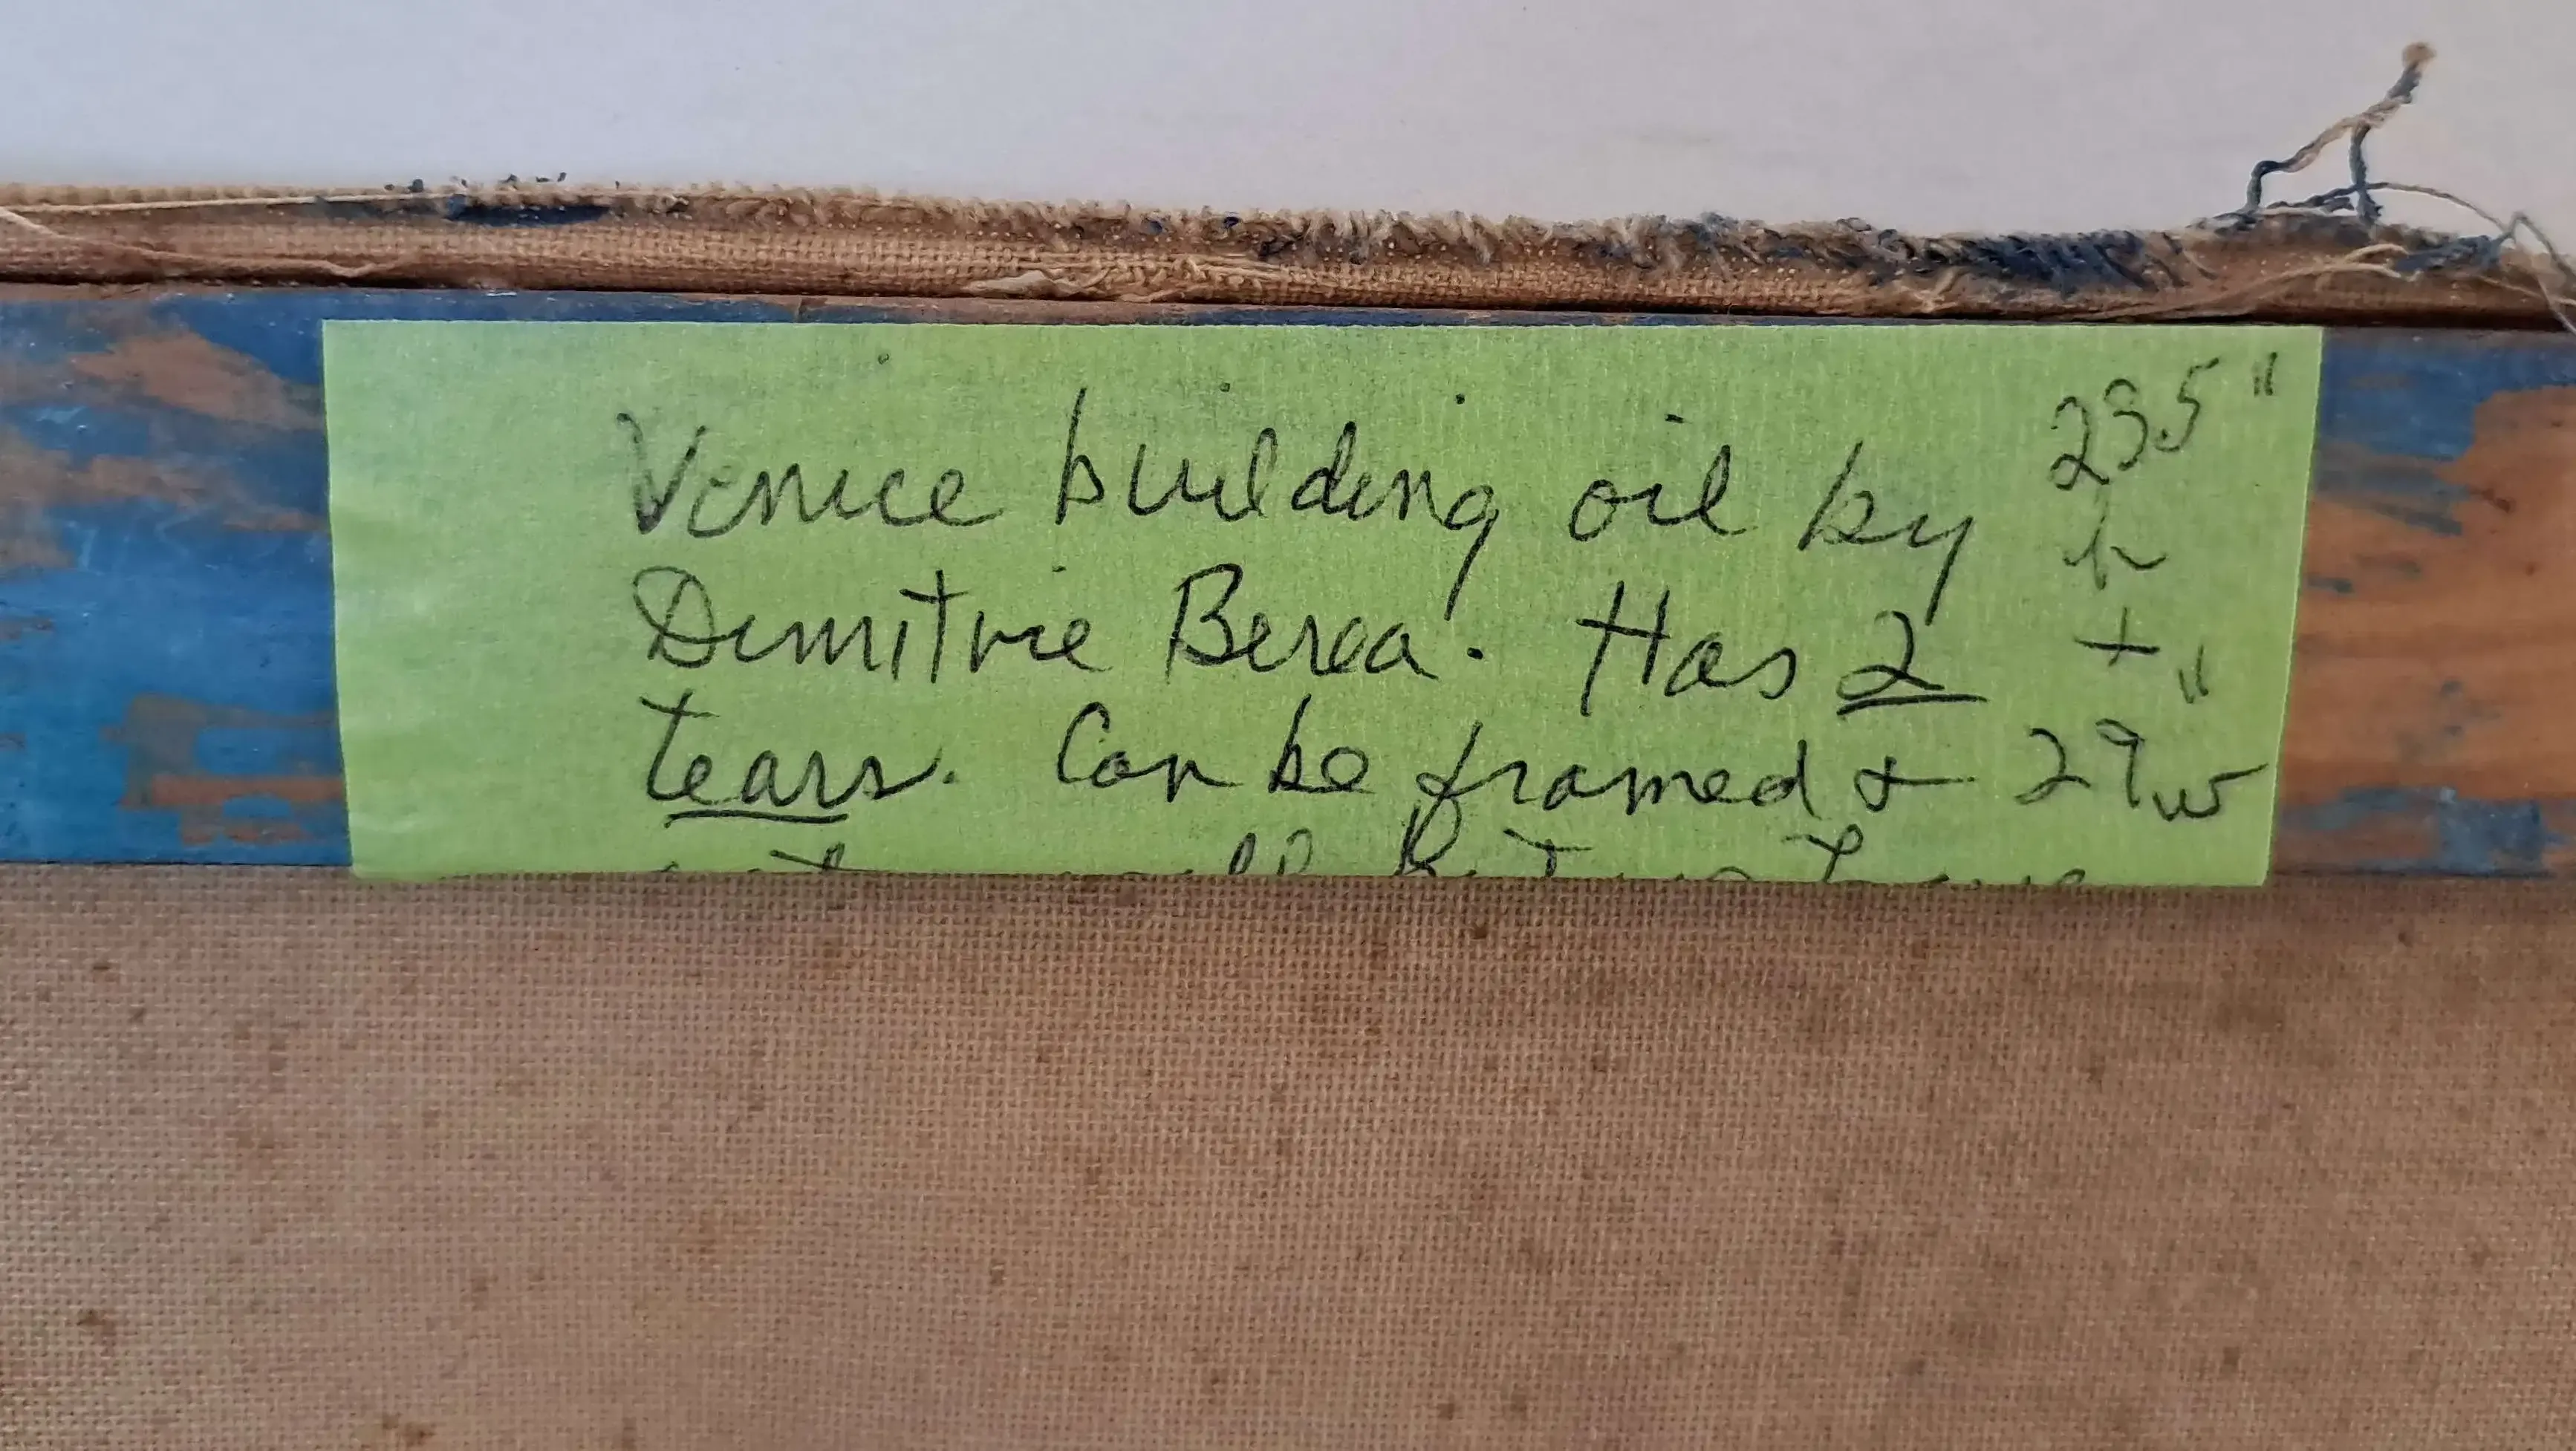 Venice building oil by
Dimitrie Berea. Has 2
tears. Can be framed +
23.5"
h
+
29"w